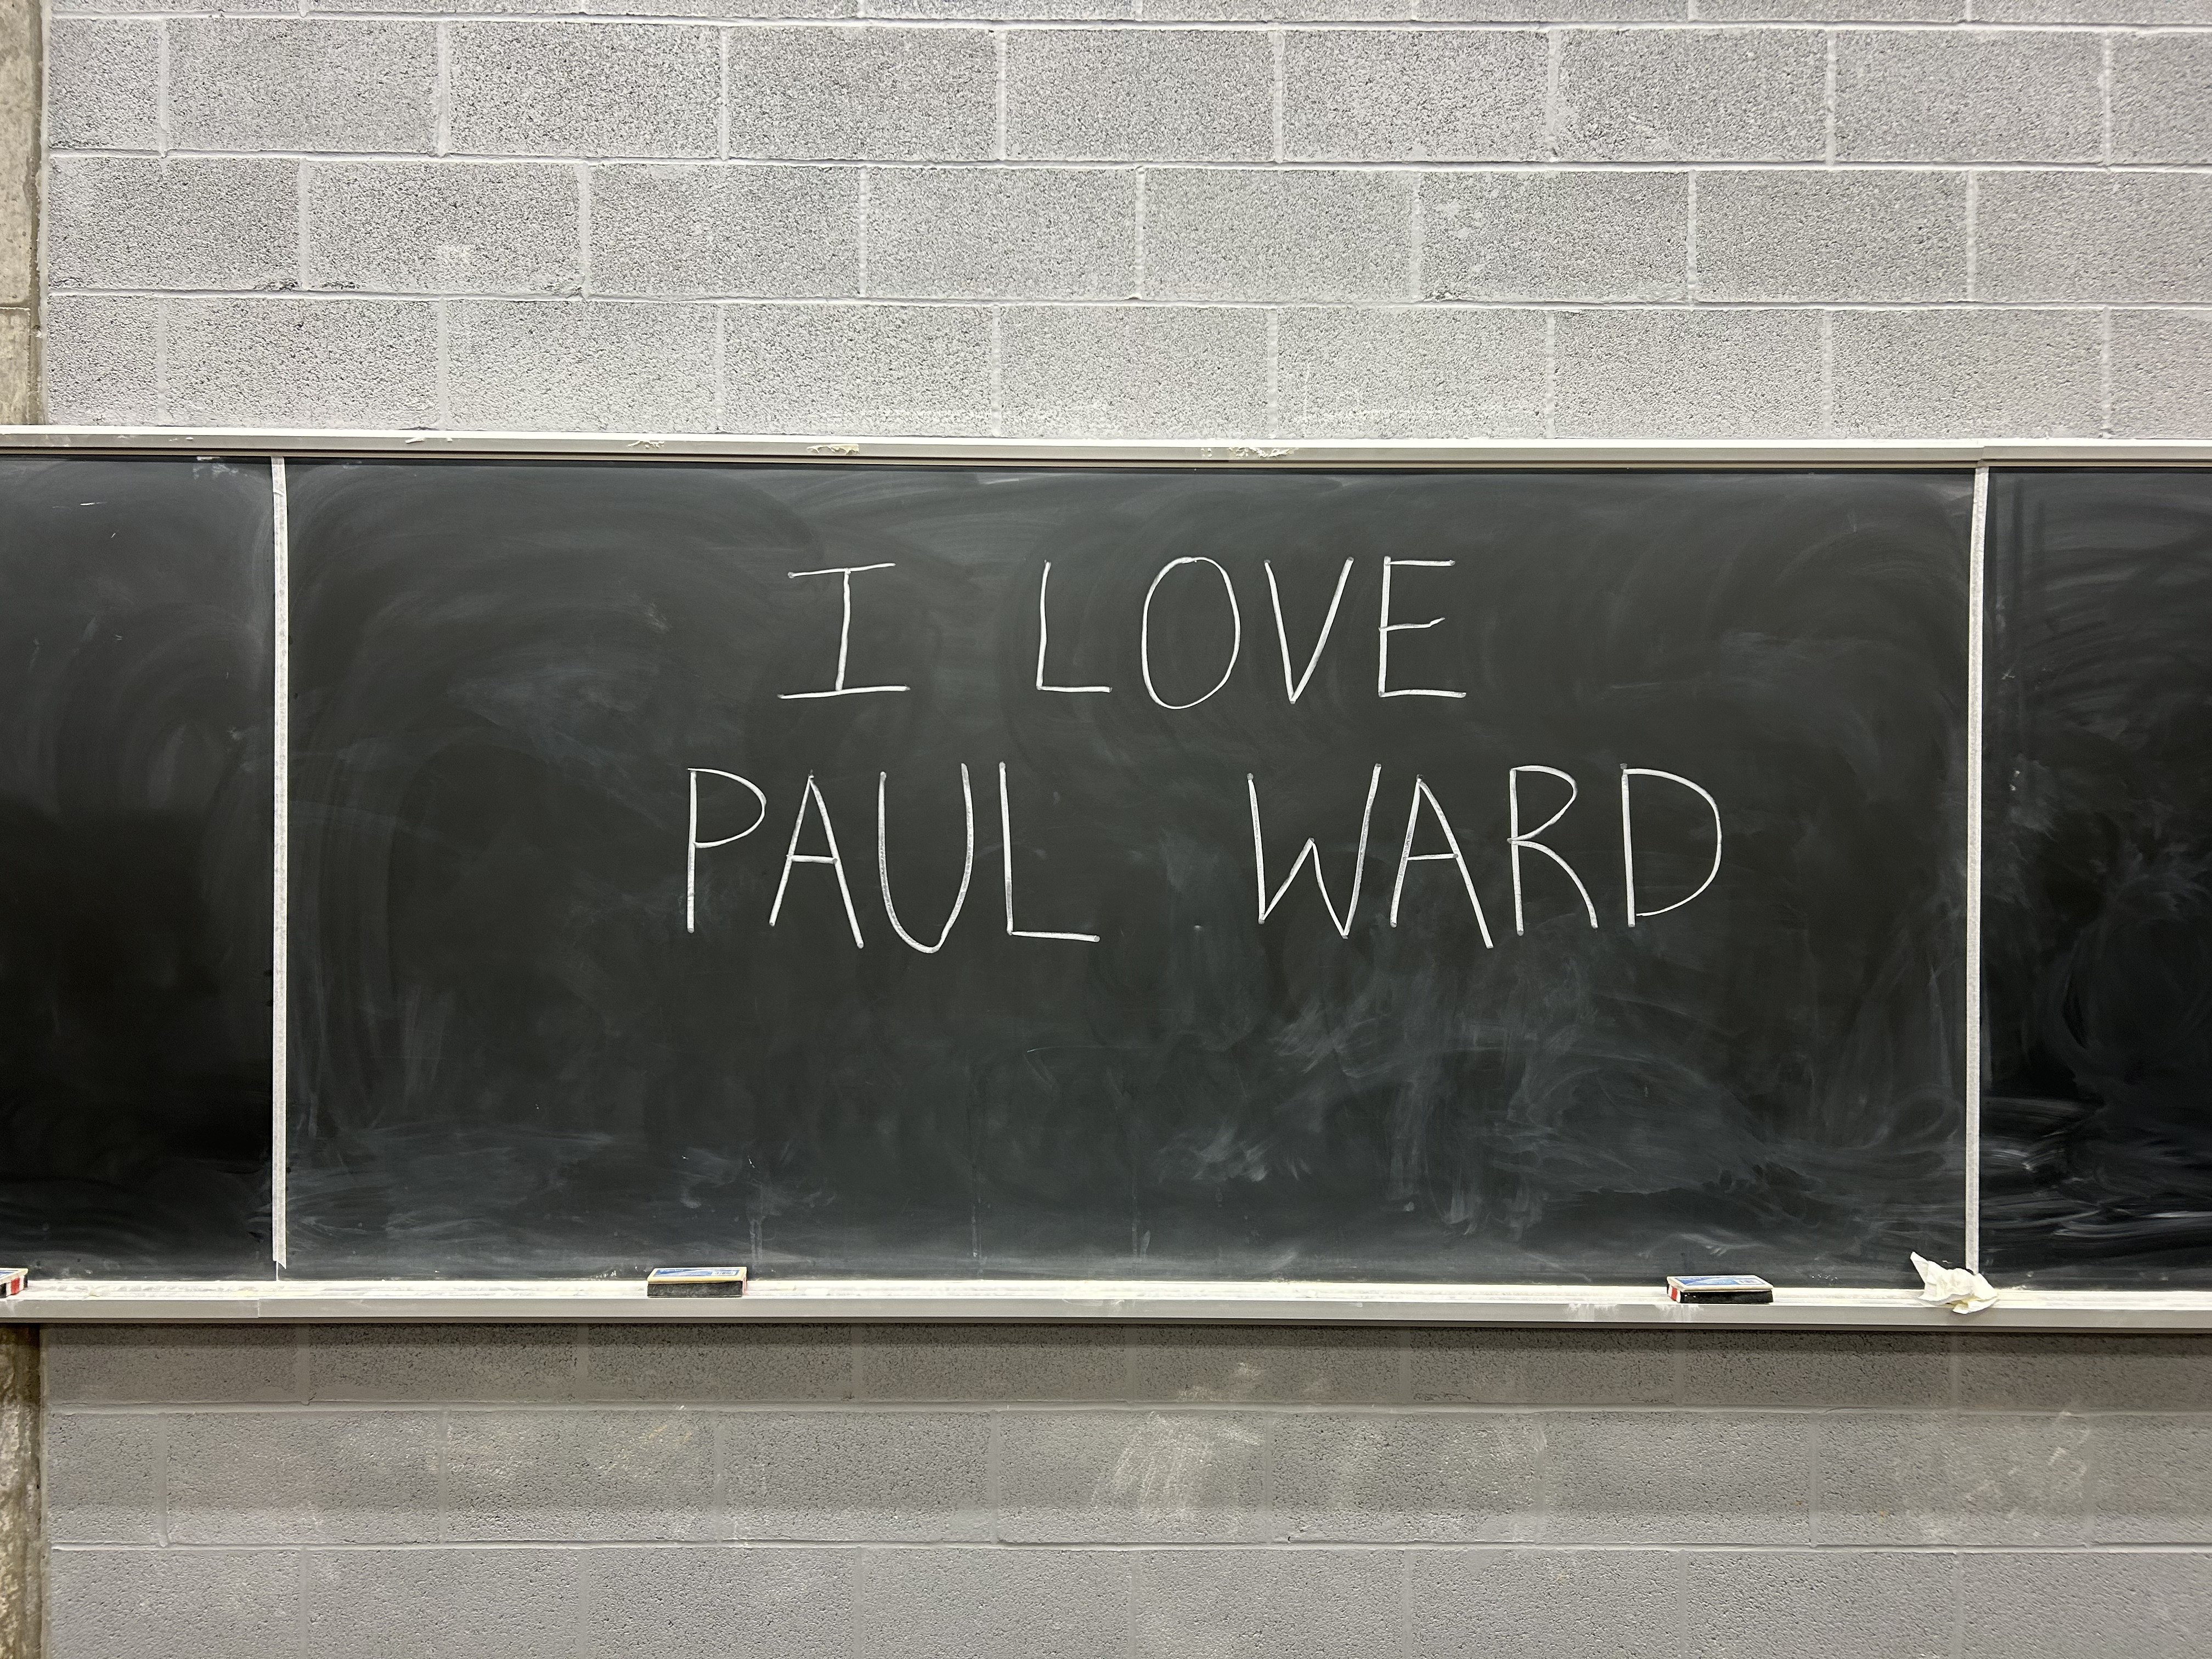 I LOVE
PAUL WARD